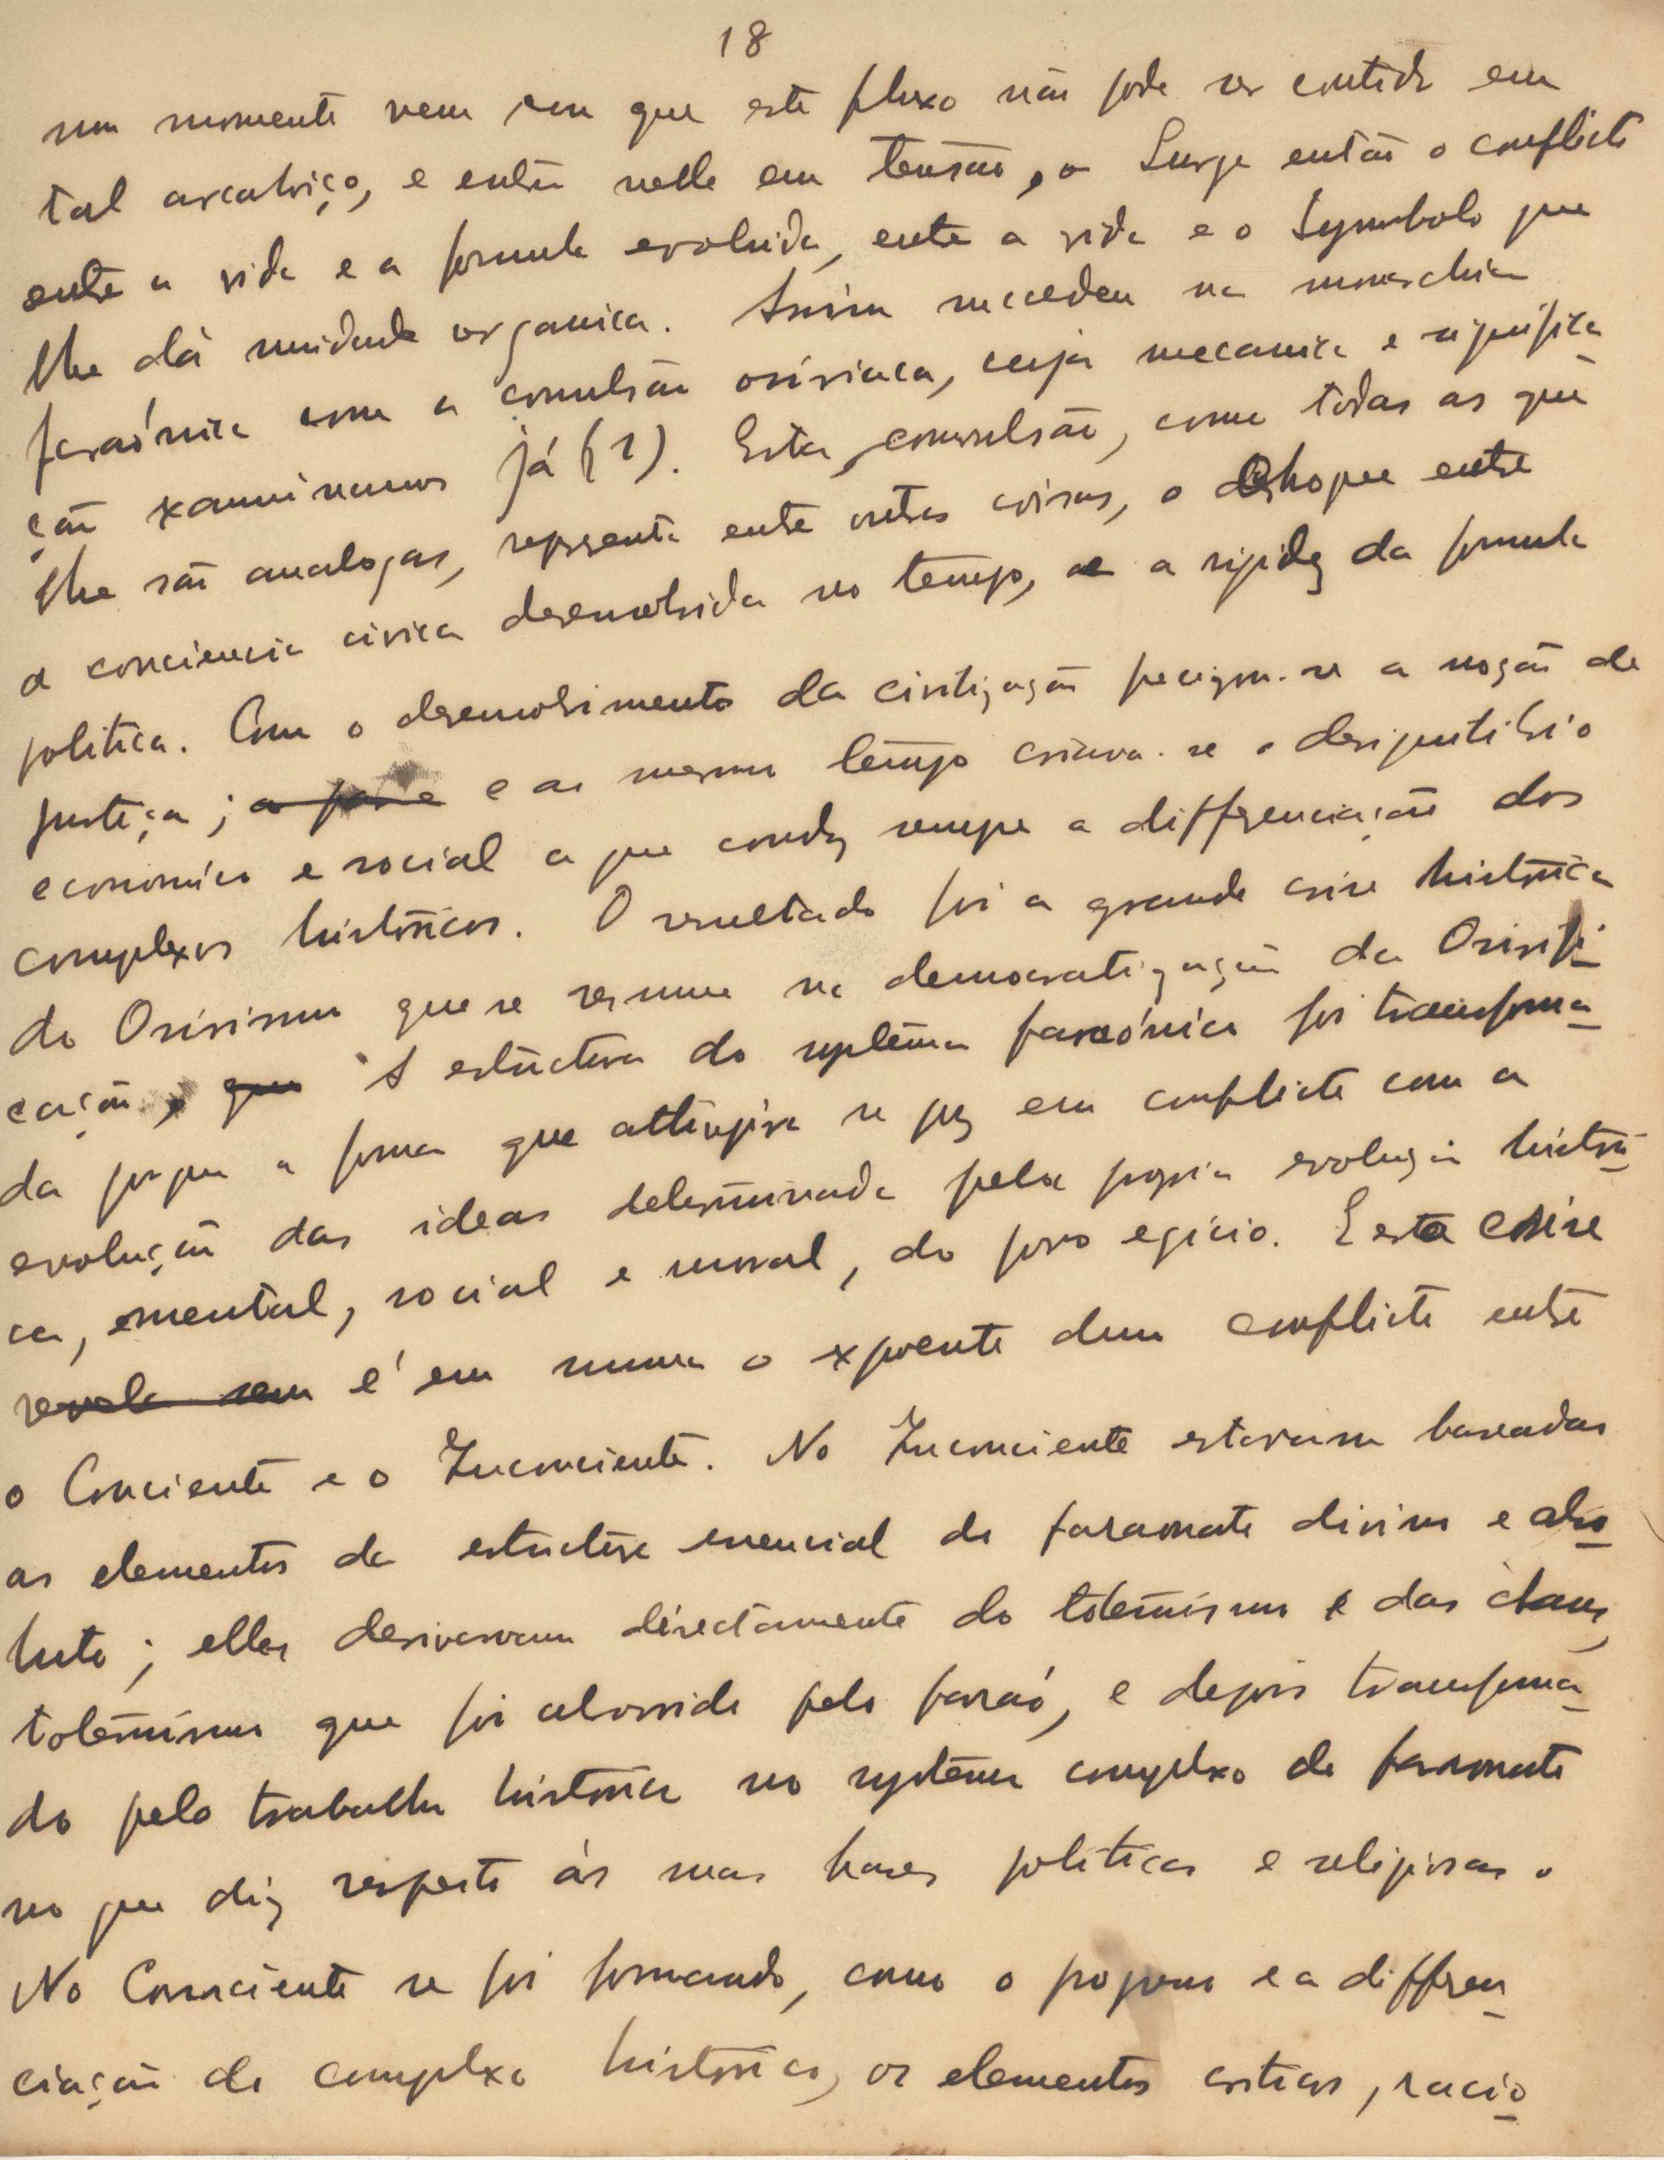 18
um momento vem em que este fluxo não pode ser contido em
tal arcabriço, e entra nelle em tensão, Surge então o conflicto
entre a vida e a formula evoluida, entre a vida e o Symbolo que
lhe dá unidade organica. Assim succedeu na monarchia
faraónica com a convulsão osiriaca, cuja mecanica e significa-
ção xaminamos já (1). Esta convulsão, como todas as que
lhe são analogas, representa entre outras coisas, o choque entre
a conciencia civica desenvolvida no tempo, e a rigidez da formula
politica. Com o desenvolvimento da civilização precizou-se a noção de
justiça; e ao mesmo tempo criava-se o desiquilibrio
economico e social a que conduz sempre a differenciação dos
complexos historicos. O resultado foi a grande crise historica
do Osirismo que se resume na democratização da Osirifi-
cação, que A estructura do systema faraónico foi transforma-
da porque a forma que attingira se poz em conflicto com a
evolução das ideas determinada pela propria evolução histori-
ca, mental, social e moral, do povo egicio. E esta crise
revela sem é em summa o xpoente dum conflicto entre
o Conciente e o Inconciente. No Inconciente estavam baseados
os elementos da estructura essencial do faraonato divino e abso-
luto; elles derivavam directamente do totemismo e das clans,
totemismo que foi absorvido pelo faraó, e depois transforma-
do pelo trabalho historico no systema complexo do faraonato
no que diz respeito ás suas bases politicas e religiosas.
No Consciente se foi formando, com o progresso e a differen-
ciação do complexo historico, os elementos criticos, racio-